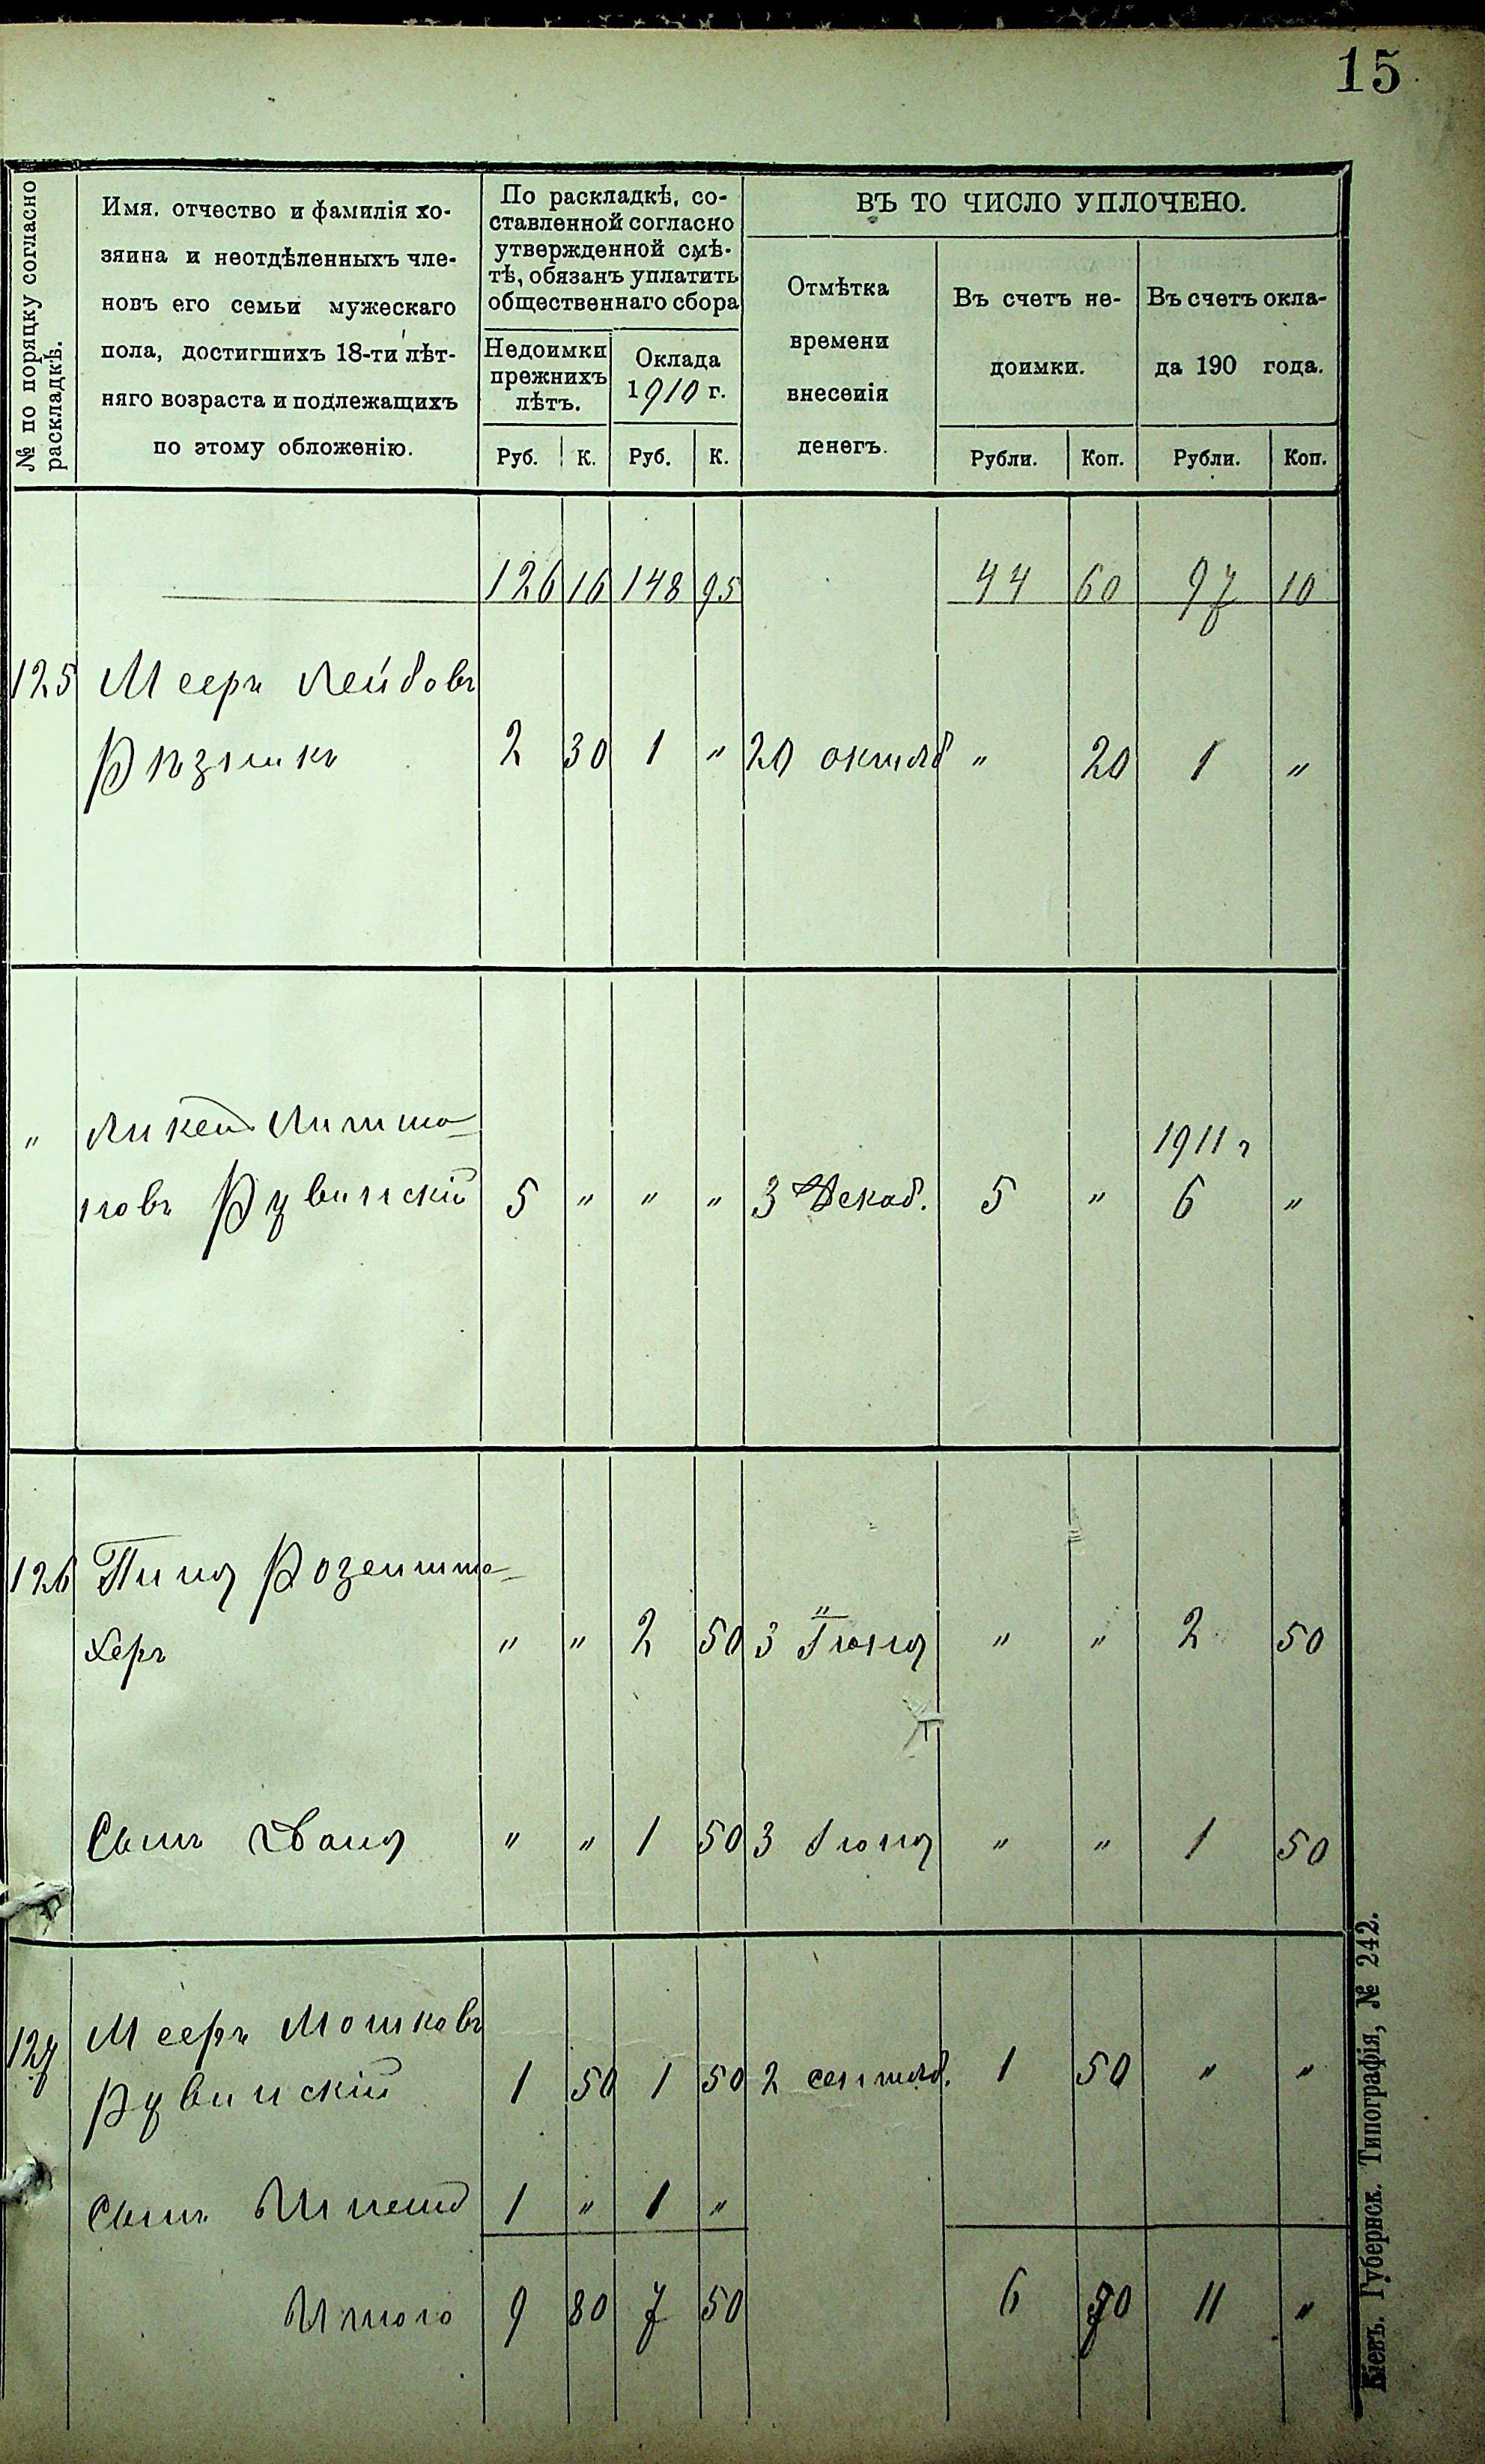 15
№ по порядку согласно
раскладкѣ.
Имя, отчество и фамилія хо-
зяина и неотдѣленныхъ чле-
новъ его семьи мужескаго
пола, достигшихъ 18-ти лѣт-
няго возраста и подлежащихъ
по этому обложенію.
По раскладкѣ, со-
ставленной согласно
утвержденной смѣ-
тѣ, обязанъ уплатить
общественнаго сбора
Недоимки
прежнихъ
лѣтъ.
Оклада
1910 г.
Руб. К. Руб. К.
ВЪ ТО ЧИСЛО УПЛОЧЕНО.
Отмѣтка
времени
внесенія
денегъ.
Въ счетъ не-
доимки.
Въ счетъ окла-
да 190 года.
Рубли. Коп. Рубли. Коп.
126 16 148 95 44 60 97 10
125 Мееръ Лейбовъ
2 30 1 " 20 октяб " 20 1 "
" 1911 г
новъ Рувинскій 5 " " " 3 Декаб. 5 " 6 "
126 Пиня Розенто-
херъ " " 2 50 3 Іюня " " 2 50
Сынъ Даня " " 1 50 3 Іюня " " 1 50
127 Мееръ Мошковъ
Рувинскій 1 50 1 50 2 сентяб. 1 50 " "
Сынъ 1 " 1 "
Итого 9 80 7 50 6 70 11 "
Кіевъ. Губернск. Типографія, № 242.